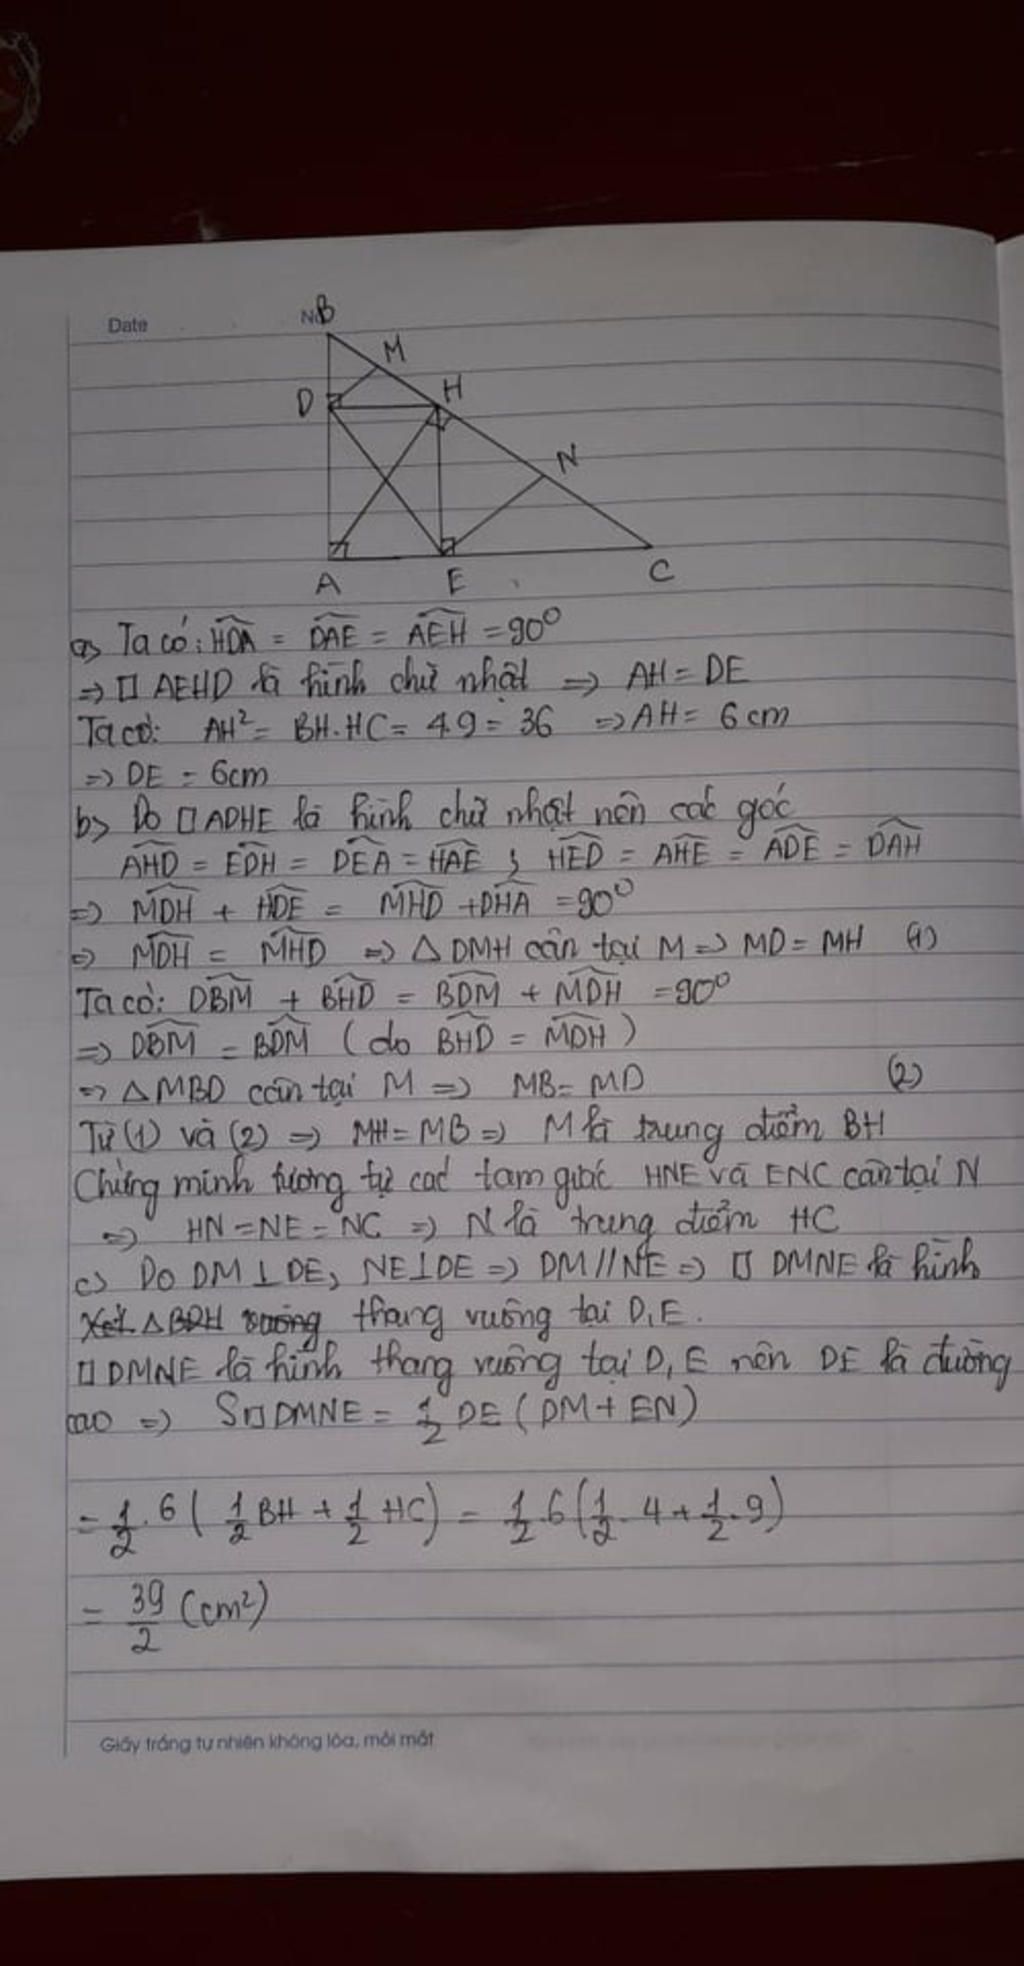 Date
No
B
M
D
H
N
A
E
C
a) Ta có: HDA = DAE = AEH = 90°
=> □ AEHD là hình chữ nhật => AH = DE
Ta có: AH² = BH.HC = 4.9 = 36 => AH = 6 cm
=> DE = 6cm
b) Do □ ADHE là hình chữ nhật nên các góc
AHD = EDH = DEA = HAE ; HED = AHE = ADE = DAH
=> MDH + HDE = MHD + DHA = 90°
=> MDH = MHD => △ DMH cân tại M => MD = MH (1)
Ta có: DBM + BHD = BDM + MDH = 90°
=> DBM = BDM (do BHD = MDH)
=> △ MBD cân tại M => MB = MD (2)
Từ (1) và (2) => MH = MB => M là trung điểm BH
Chứng minh tương tự các tam giác HNE và ENC cân tại N
=> HN = NE = NC => N là trung điểm HC
c) Do DM ⊥ DE, NE ⊥ DE => DM // NE => □ DMNE là hình
Xét △ BDH vuông thang vuông tại D, E.
□ DMNE là hình thang vuông tại D, E nên DE là đường
cao => S□DMNE = 1/2 DE (DM + EN)
= 1/2 . 6 ( 1/2 BH + 1/2 HC) = 1/2 . 6 (1/2 . 4 + 1/2 . 9)
= 39/2 (cm²)
Giấy trắng tự nhiên không lóa, mỏi mắt